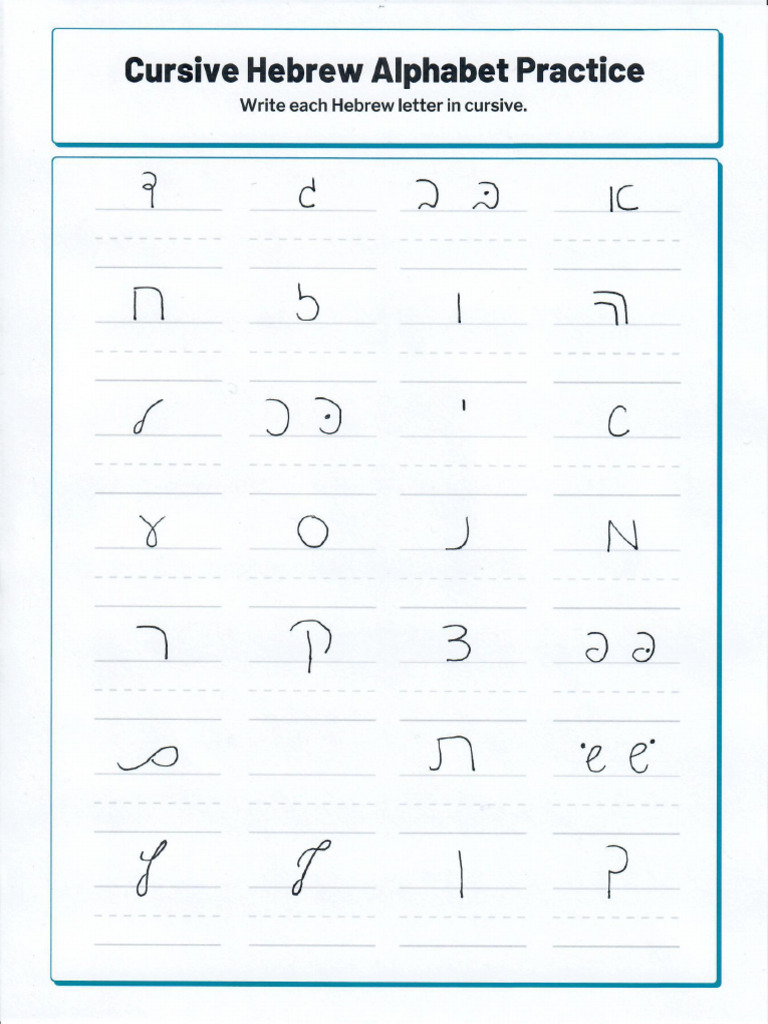 Cursive Hebrew Alphabet Practice
Write each Hebrew letter in cursive.
א בּ ב ג ד
ה ו ז ח
ט י כּ כ ל
מ נ ס ע
פּ פ צ ק ר
שׁ שׂ ת ם
ך ן ף ץ